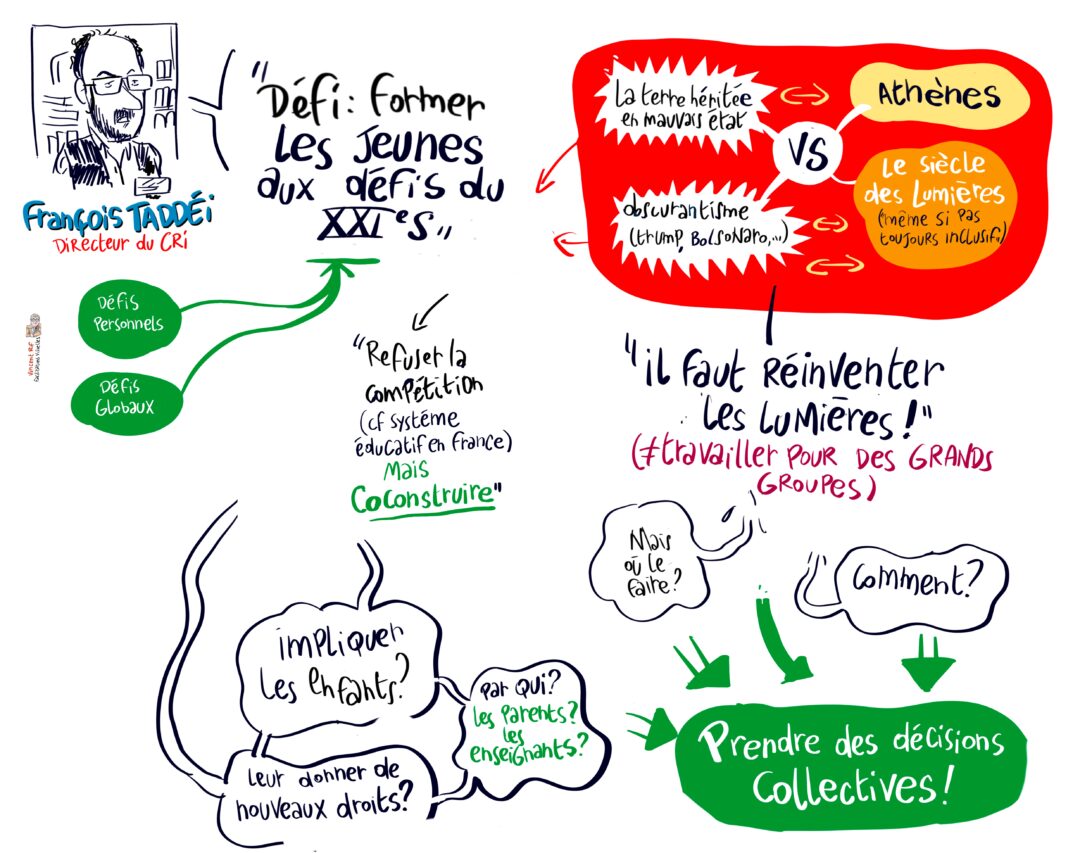 "Défi: former
les jeunes
aux défis du
XXIe s"
François TADDÉi
Directeur du CRi
Défis
Personnels
Défis
Globaux
"Refuser la
compétition
(cf systéme
éducatif en france)
Mais
Coconstruire"
La terre héritée
en mauvais état
VS
Athènes
obscurantisme
(trump, Bolsonaro,...)
Le siècle
des Lumières
(même si pas
toujours inclusif)
"il faut Réinventer
les Lumières!"
(≠travailler pour des GRANDS
GROUPES)
Mais
où le
faire?
Comment?
impliquer
les enfants?
Par qui?
les Parents?
les
enseignants?
leur donner de
nouveaux droits?
Prendre des décisions
Collectives!